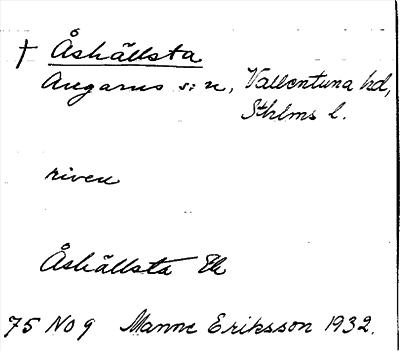 † Åshällsta
Angarns s:n, Vallentuna hd,
Sthlms l.
riven
Åshällsta
75 NO 9 Manne Eriksson 1932.